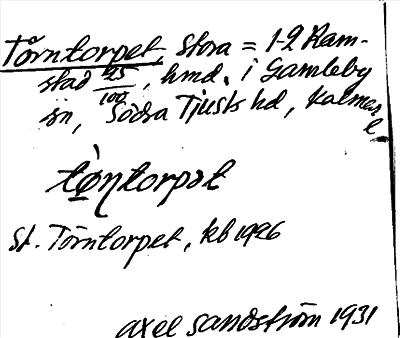 Törntorpet, Stora = 1-2 Ram-
stad 25/100, hmd. i Gamleby
sn, Södra Tjusts hd, Kalmar
l.
tø̀ṇtorpət
St. Törntorpet, kb 1926
Axel Sandström 1931